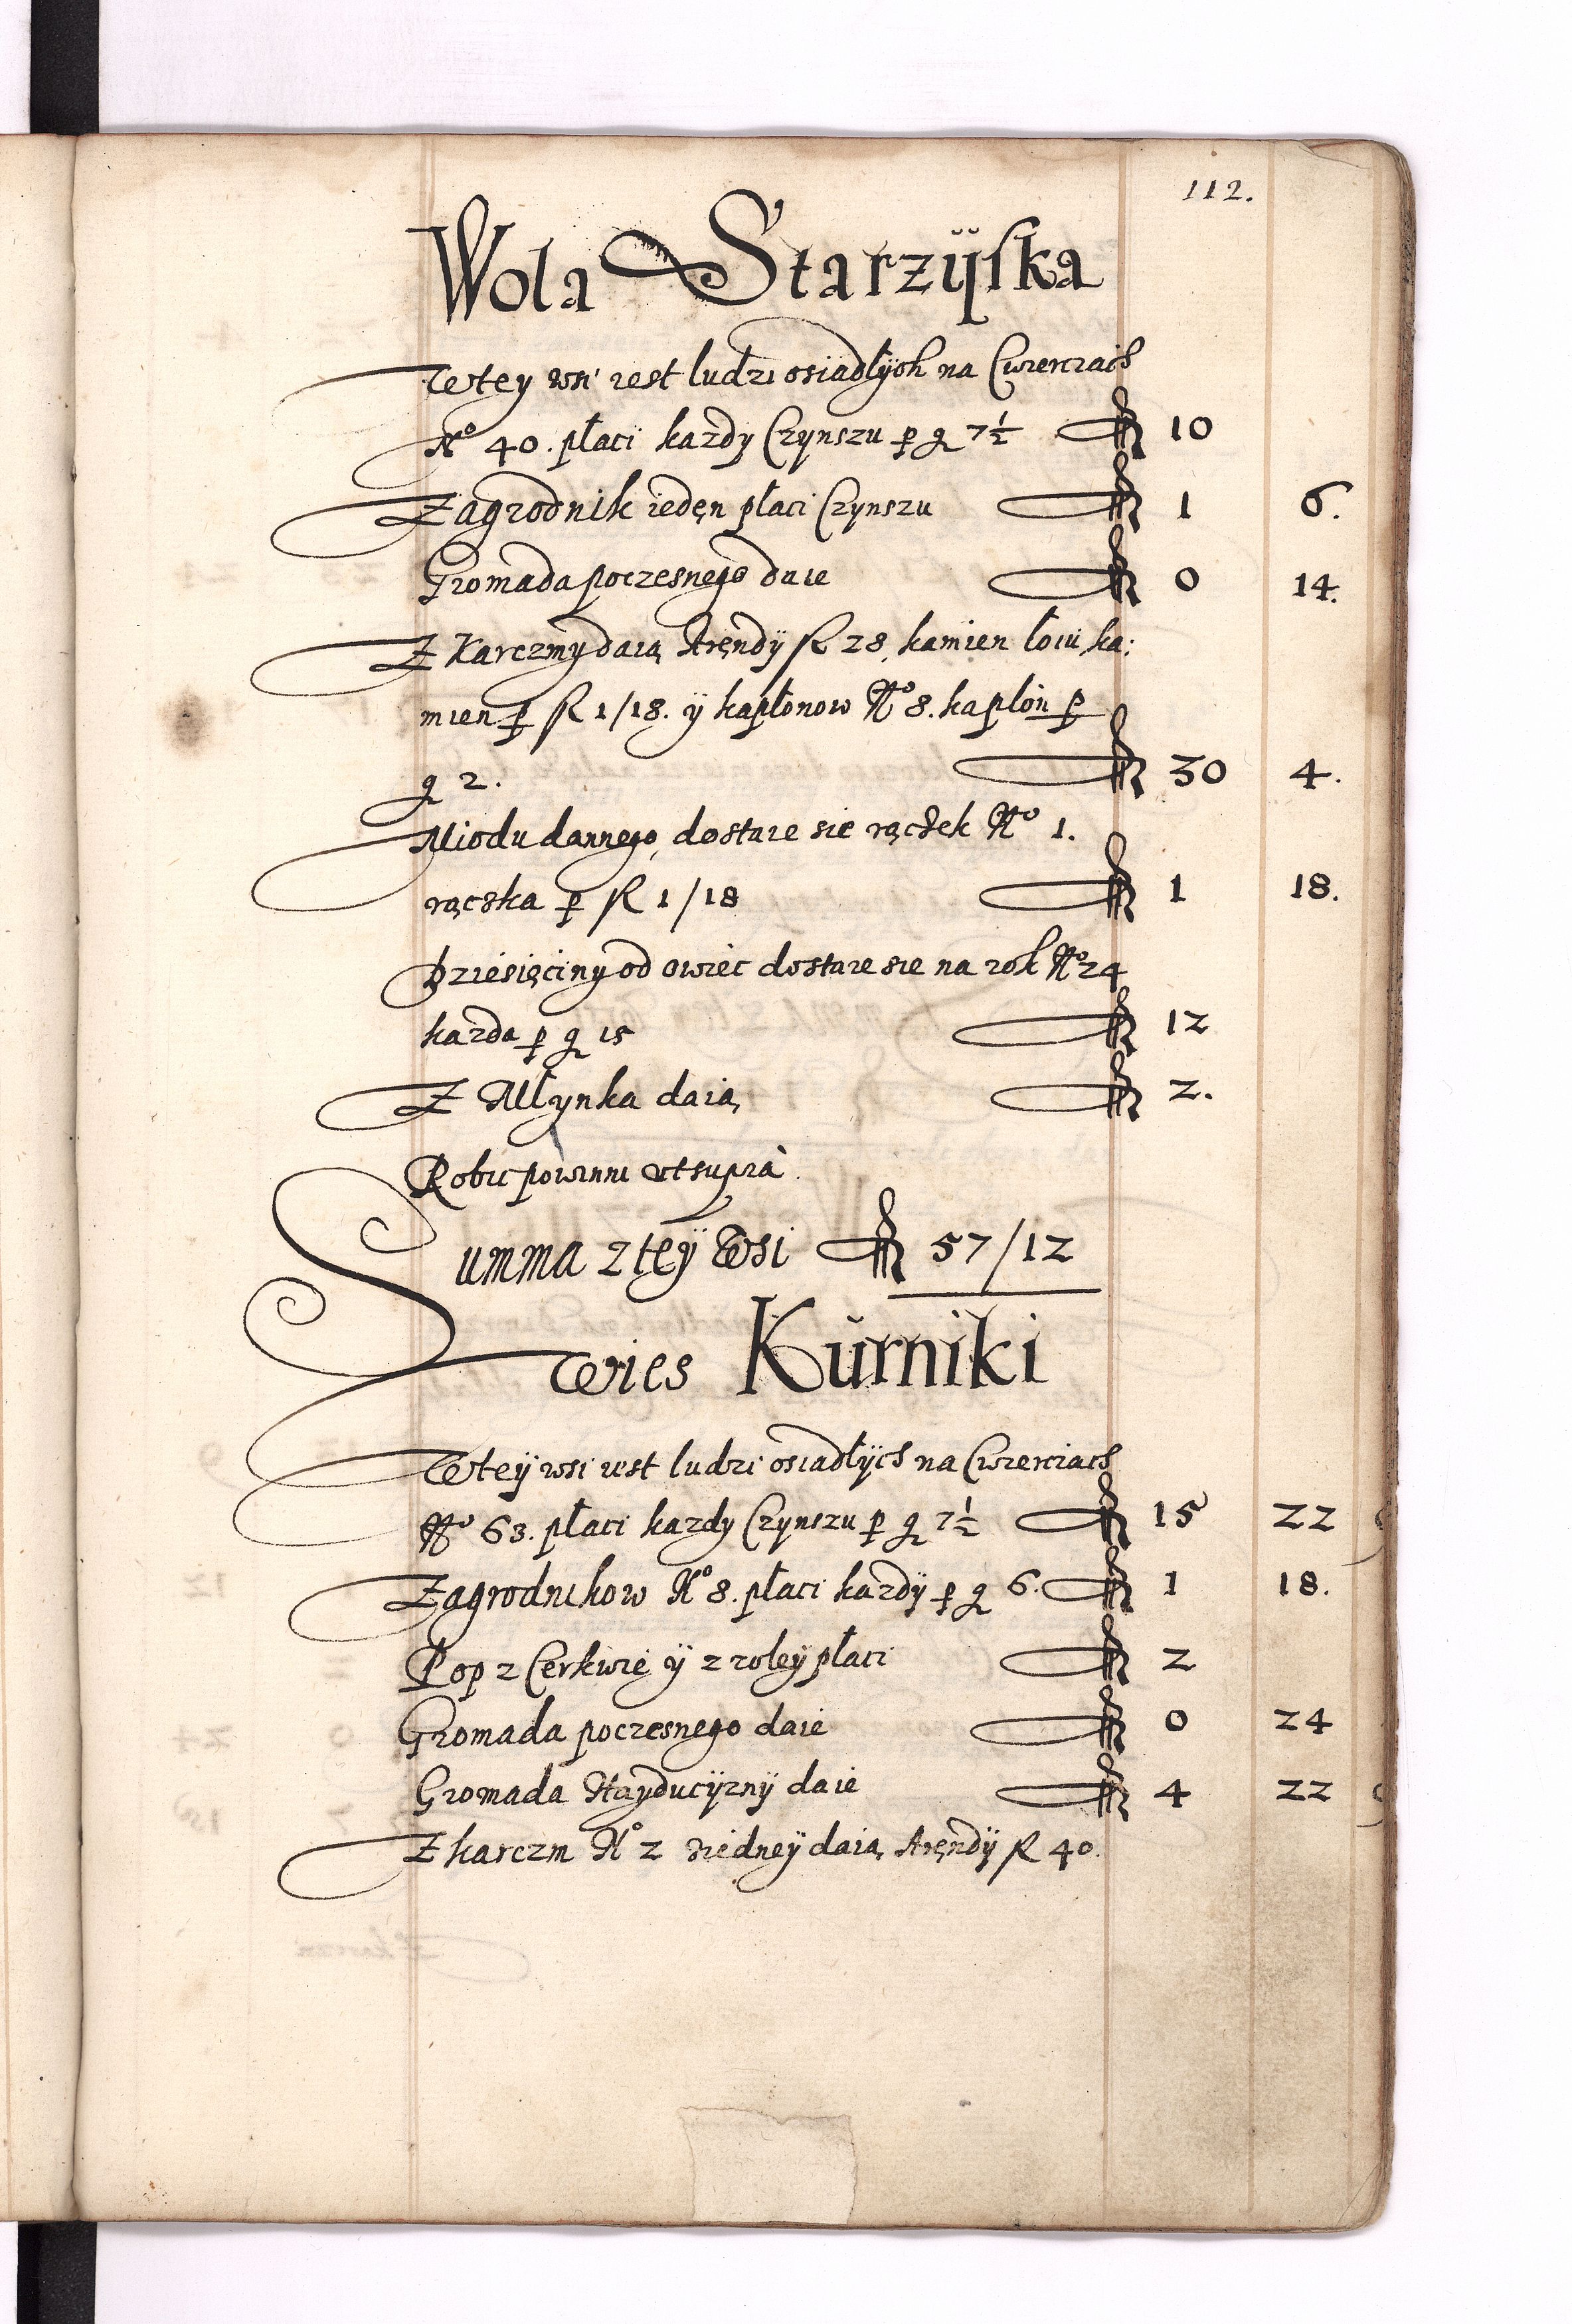 112.
Wola Starzÿska
Wtey wsi iest ludzi osiadłÿch na Cwierciach
No 40. płaci kazdy Czynszu p g 7½ fl 10
Zagrodnik ieden płaci Czynszu fl 1 6.
Gromada poczesnego daie fl 0 14.
Z Karczmy daią Aręndÿ fl 28, kamien łoiu, ka:
mien p fl 1/18. ÿ kapłonow No 8. kapłon p
g 2. fl 30 4.
Miodu dannego, dostaie sie rączek No 1.
rączka p fl 1/18 fl 1 18.
Dziesięciny od owiec dostaie sie na rok No 24
kazda p g 15 fl 12
Z Młynka daią fl 2.
Robic powinni utsupra.
Summa z teÿ Wsi fl 57/12
Wies Kŭrniki
Wteÿ wsi iest ludzi osiadłÿch na Cwierciach
No 63. płaci kazdy Czynszu p g 7½ fl 15 22
Zagrodnikow No 8. płaci kazdÿ p g 6. fl 1 18.
Pop z Cerkwie ÿ z roleÿ płaci fl 2
Gromada poczesnego daie fl 0 24
Gromada Hayducÿznÿ daie fl 4 22
Z karczm No 2 ziedneÿ daią Aręndÿ fl 40.